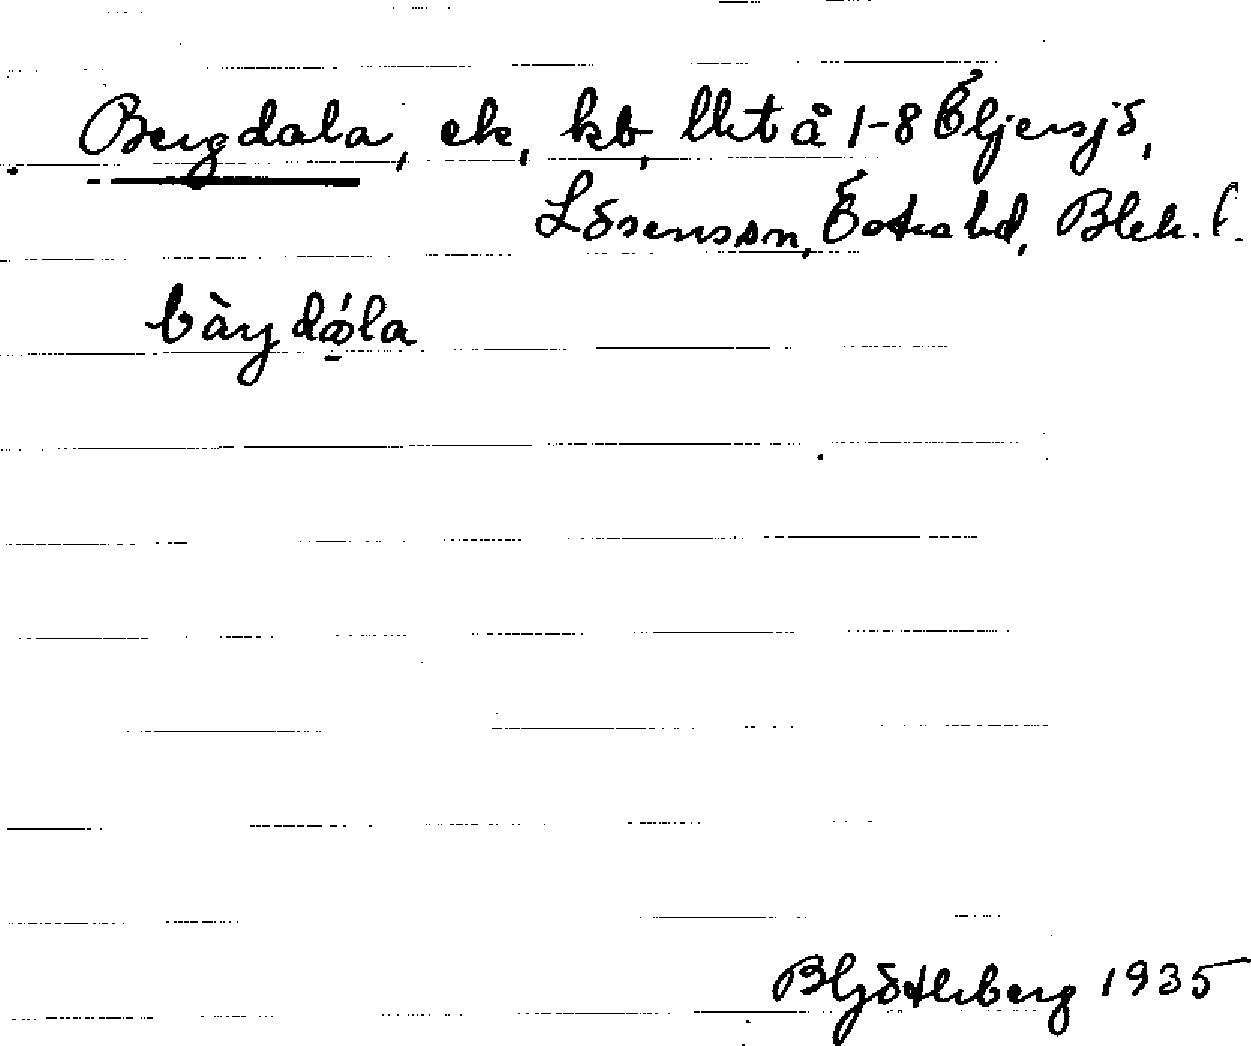 Bergdala, ek, kb, lht å 1-8 Öljersjö,
Lösenssn, Östra hd, Blek. l.
bàrg dǫ́la
Bljöthberg 1935